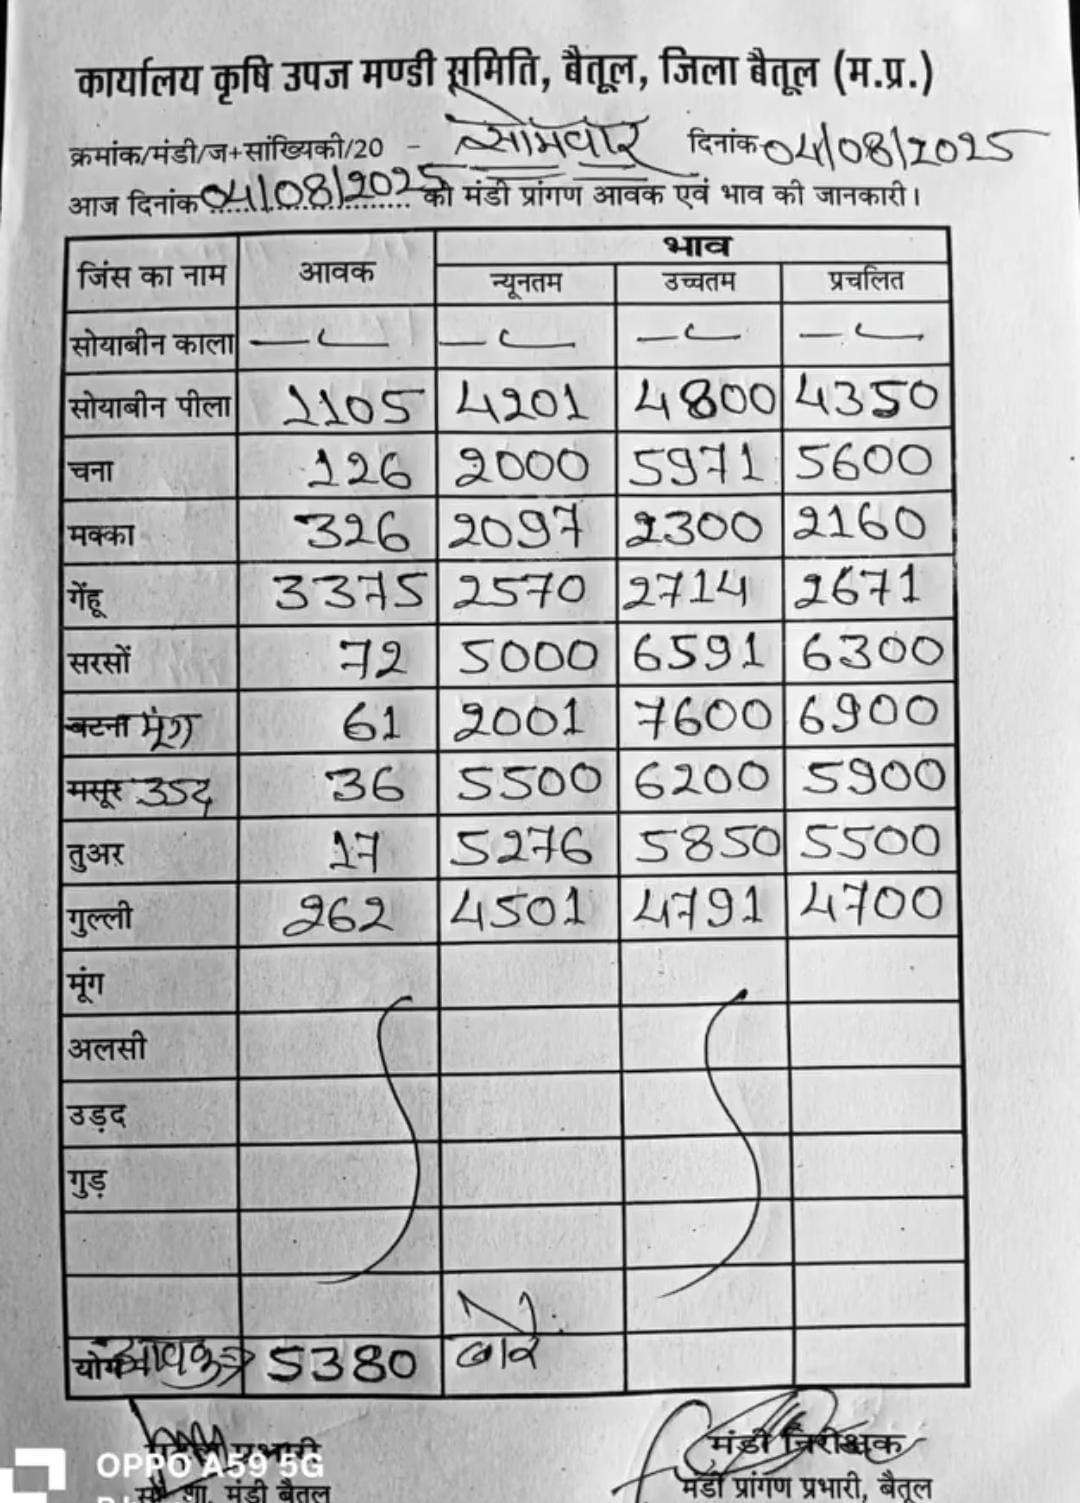 कार्यालय कृषि उपज मण्डी समिति, बैतूल, जिला बैतूल (म.प्र.)
क्रमांक/मंडी/ज+सांख्यिकी/20 - सोमवार दिनांक 04/08/2025
आज दिनांक 04/08/2025 को मंडी प्रांगण आवक एवं भाव की जानकारी।
जिंस का नाम आवक भाव
न्यूनतम उच्चतम प्रचलित
सोयाबीन काला — — — —
सोयाबीन पीला 1105 4201 4800 4350
चना 126 2000 5971 5600
मक्का 326 2097 2300 2160
गेंहू 3375 2570 2714 2671
सरसों 72 5000 6591 6300
बटना मूंग 61 2001 7600 6900
मसूर उड़द 36 5500 6200 5900
तुअर 17 5276 5850 5500
गुल्ली 262 4501 4791 4700
मूंग
अलसी
उड़द
गुड़
योग आवक 5380 बोरे
प्रभारी मंडी निरीक्षक
मंडी बैतूल मंडी प्रांगण प्रभारी, बैतूल
OPPO A59 5G